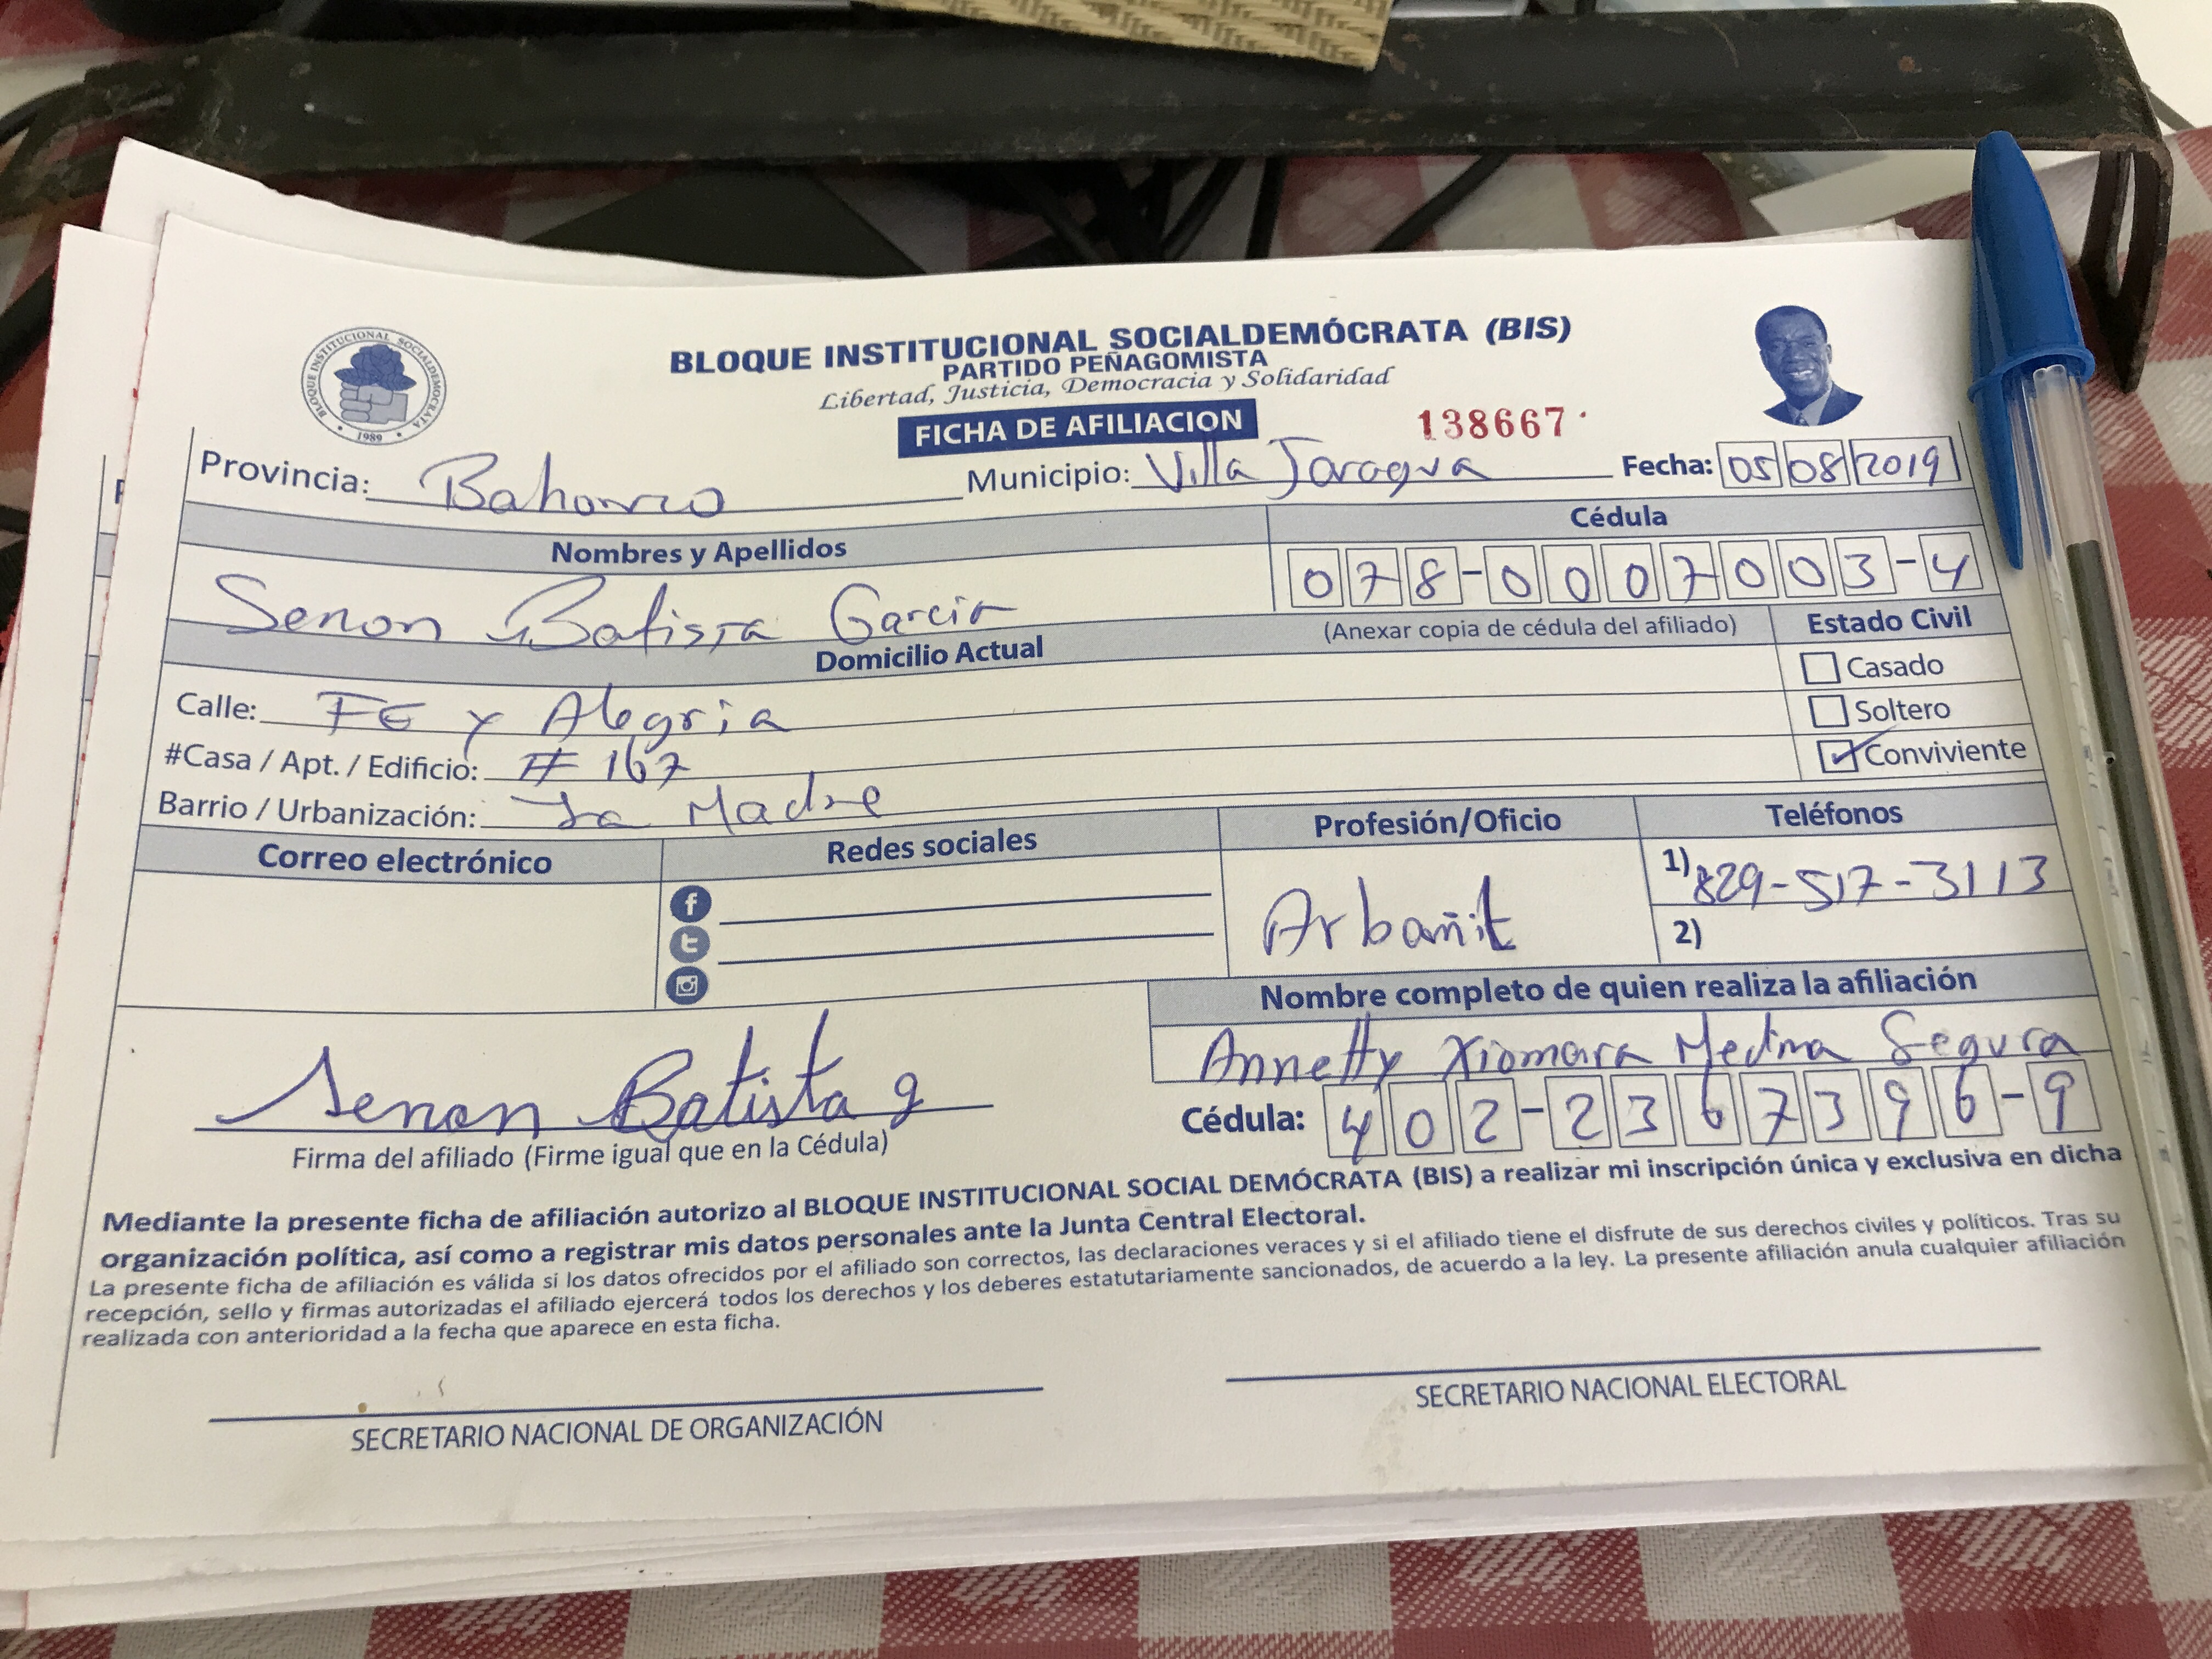 BLOQUE INSTITUCIONAL SOCIALDEMÓCRATA (BIS)
PARTIDO PEÑAGOMISTA
Libertad, Justicia, Democracia y Solidaridad
BLOQUE INSTITUCIONAL SOCIALDEMOCRATA
1989
FICHA DE AFILIACION 138667
Provincia: Bahoruco Municipio: Villa Jaragua Fecha: 05 08 2019
Nombres y Apellidos Cédula
Senon Batista Garcia 078-0007003-4
Domicilio Actual (Anexar copia de cédula del afiliado) Estado Civil
Casado
Calle: FE y Alegria Soltero
#Casa / Apt. / Edificio: # 167 Conviviente
Barrio / Urbanización: La Madre
Correo electrónico Redes sociales Profesión/Oficio Teléfonos
1) 829-517-3113
f
2)
Nombre completo de quien realiza la afiliación
Annetty Xiomara Medina Segura
Senon Batista g Cédula: 402-2367396-9
Firma del afiliado (Firme igual que en la Cédula)
Mediante la presente ficha de afiliación autorizo al BLOQUE INSTITUCIONAL SOCIAL DEMÓCRATA (BIS) a realizar mi inscripción única y exclusiva en dicha
organización política, así como a registrar mis datos personales ante la Junta Central Electoral.
La presente ficha de afiliación es válida si los datos ofrecidos por el afiliado son correctos, las declaraciones veraces y si el afiliado tiene el disfrute de sus derechos civiles y políticos. Tras su
recepción, sello y firmas autorizadas el afiliado ejercerá todos los derechos y los deberes estatutariamente sancionados, de acuerdo a la ley. La presente afiliación anula cualquier afiliación
realizada con anterioridad a la fecha que aparece en esta ficha.
SECRETARIO NACIONAL DE ORGANIZACIÓN SECRETARIO NACIONAL ELECTORAL